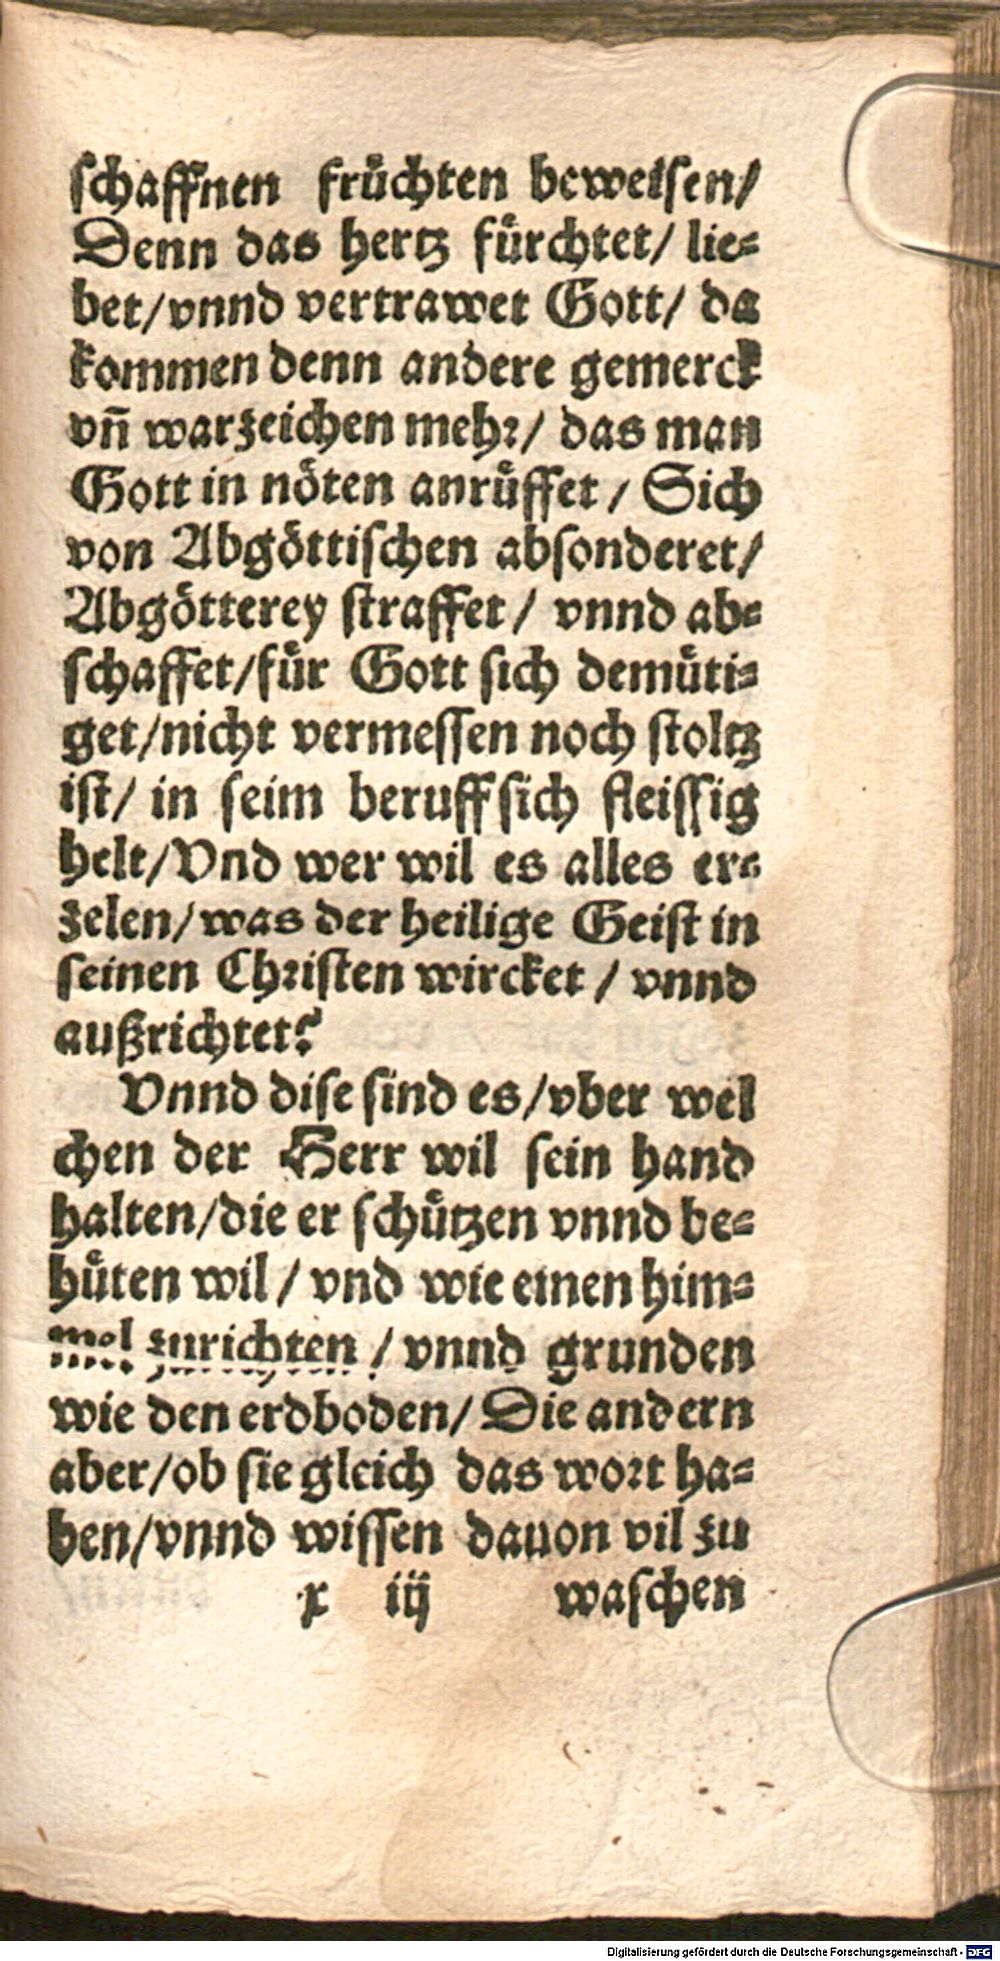 schaffnen früchten beweisen/
Denn das hertz fürchtet/ lie-
bet/vnnd vertrawet Gott/ da
kommen denn andere gemerck
vñ warzeichen mehr/ das man
Gott in nöten anrüffet/ Sich
von Abgöttischen absonderet/
Abgötterey straffet/ vnnd ab-
schaffet/für Gott sich demüti-
get/nicht vermessen noch stoltz
ist/ in seim beruff sich fleissig
helt/Vnd wer wil es alles er-
zelen/was der heilige Geist in
seinen Christen wircket/ vnnd
außrichtet?
Vnnd dise sind es/vber wel
chen der Herr wil sein hand
halten/die er schützen vnnd be-
hüten wil/ vnd wie einen him-
mel zurichten/ vnnd grunden
wie den erdboden/ Die andern
aber/ob sie gleich das wort ha-
ben/vnnd wissen dauon vil zu
x iij waschen
Digitalisierung gefördert durch die Deutsche Forschungsgemeinschaft - DFG